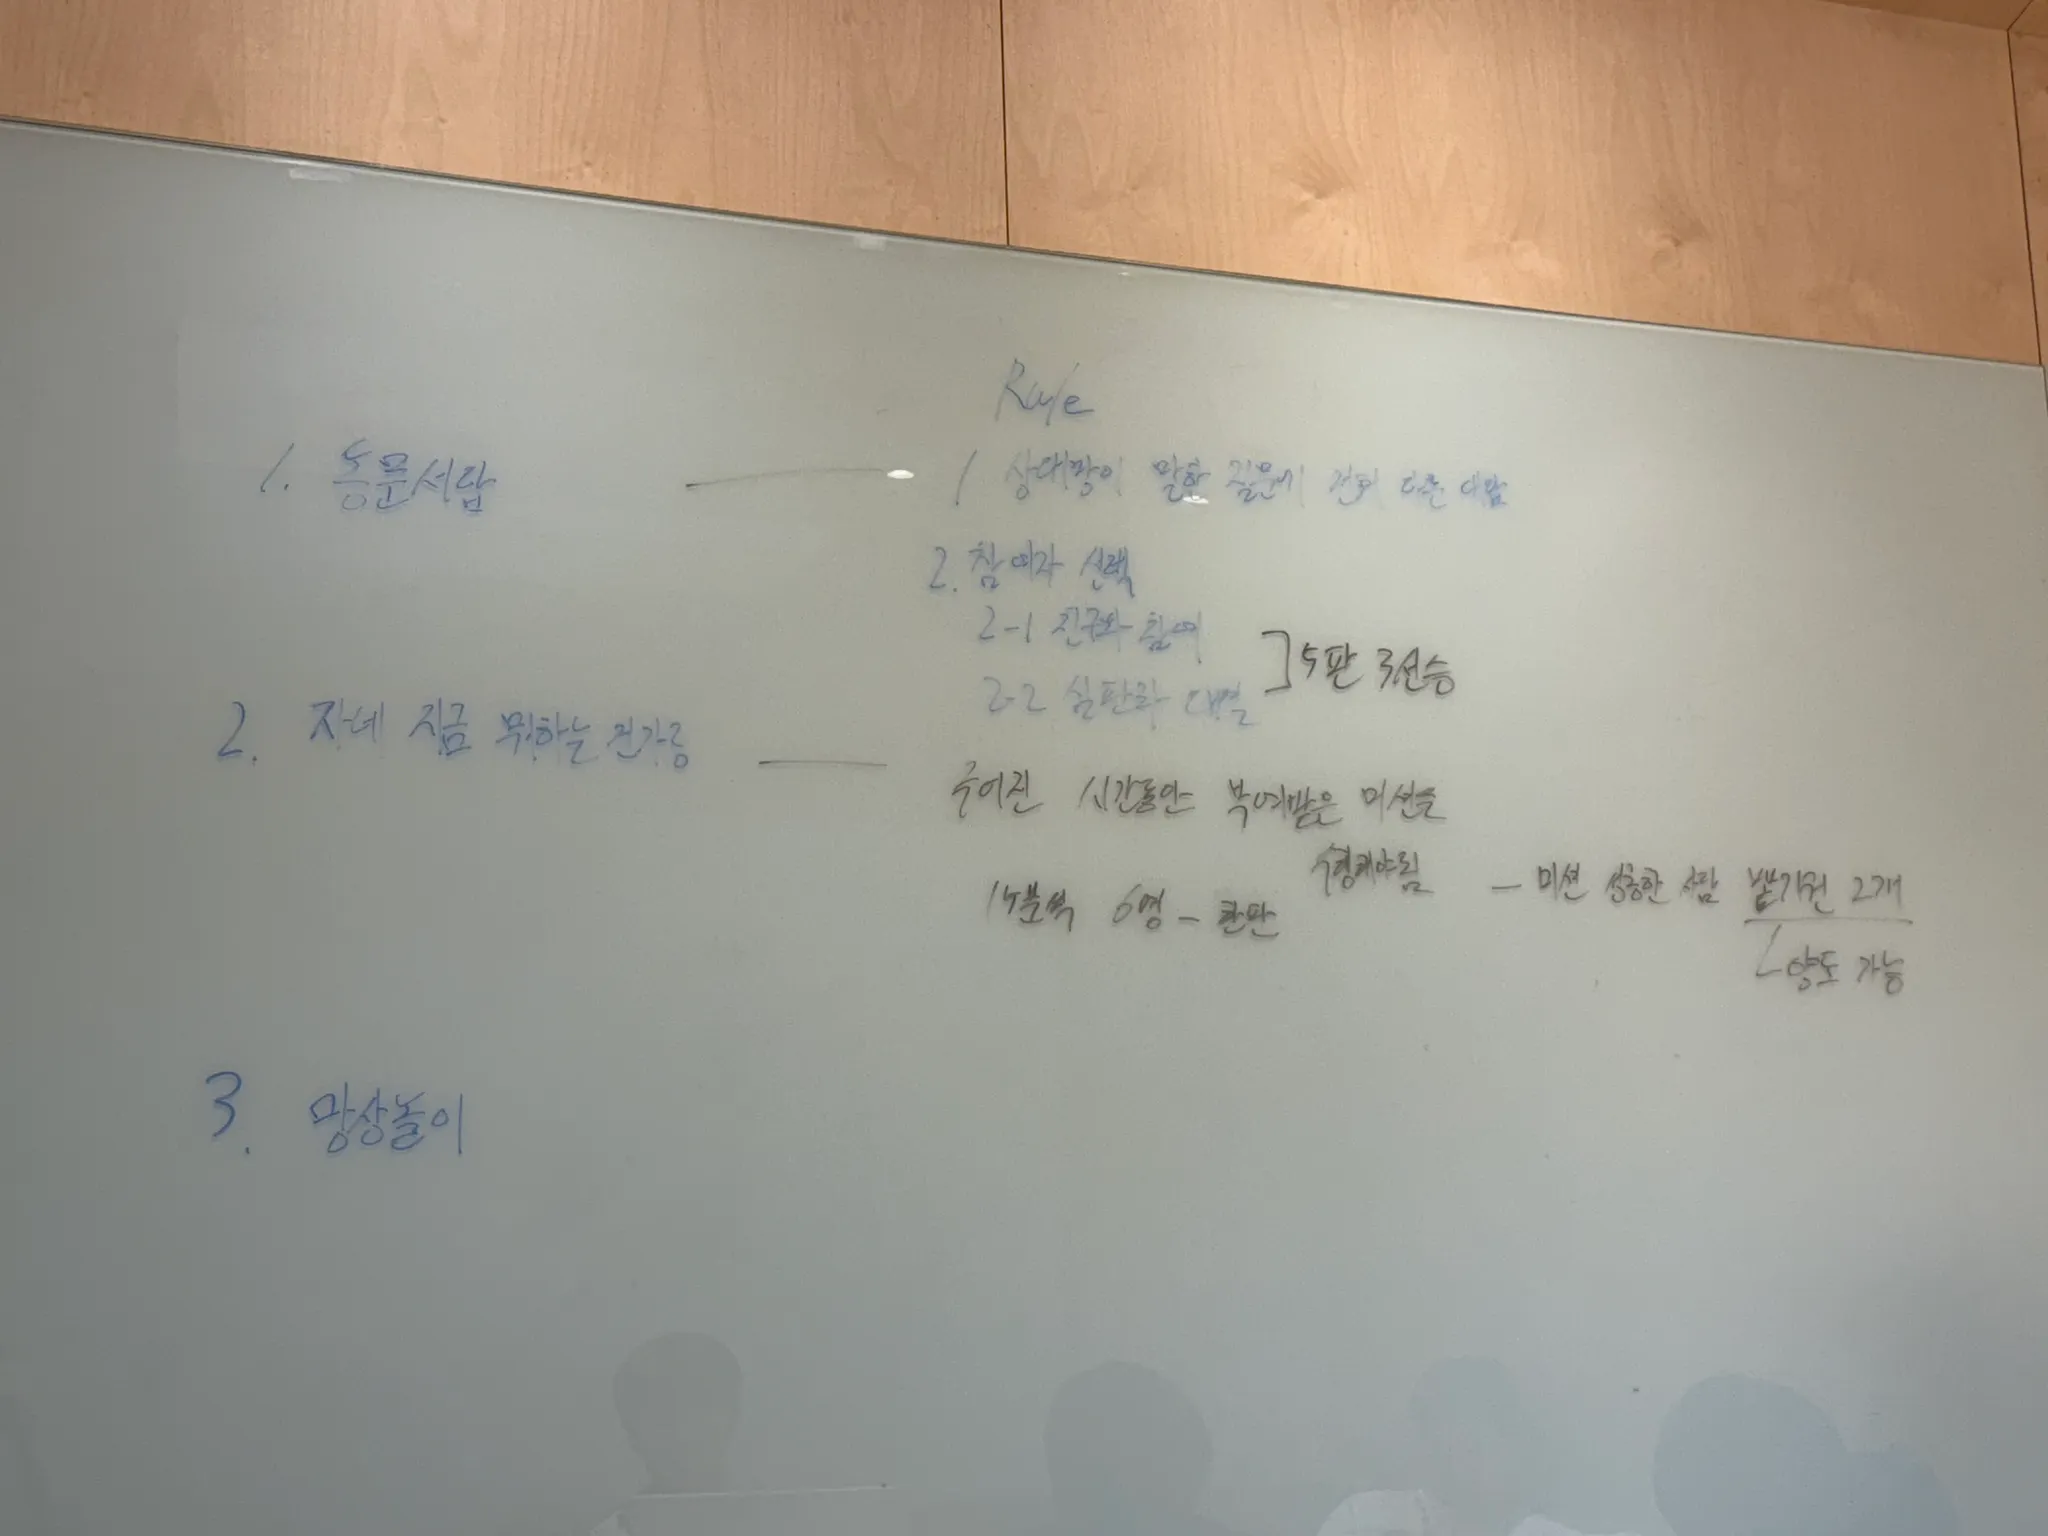 Rule
1. 동문서답
1 상대방이 말한 질문에 전혀 다른 대답
2. 참여자 선택
2-1 친구와 참여
2-2 심판과 대결
]5판 3선승
2. 자네 지금 뭐하는 건가용
주어진 시간동안 부여받은 미션을
수행해야됨
- 미션 성공한 사람 뽑기권 2개
양도 가능
15분씩 6명 - 한판
3. 망상놀이